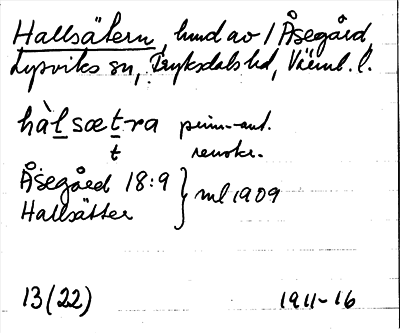 Hallsätern, hmd av 1 Åsegård,
Lysviks sn, Fryksdals hd, Värml. l.
hàlsætra prim.-ant.
t renskr.
Åsegård 18:9 } ml 1909
Hallsätter
13(22) 1911-16